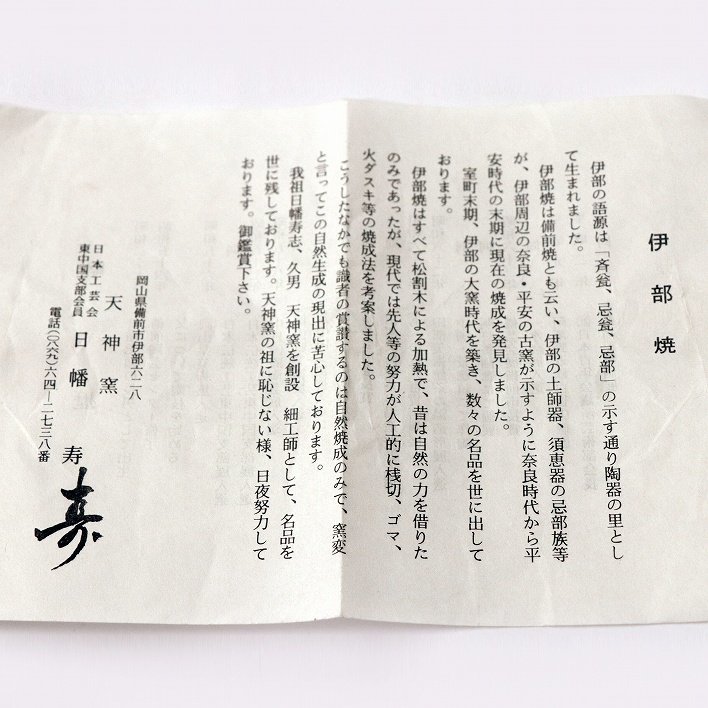 伊部焼
伊部の語源は「斉瓮、忌瓮、忌部」の示す通り陶器の里とし
て生まれました。
伊部焼は備前焼とも云い、伊部の土師器、須恵器の忌部族等
が、伊部周辺の奈良・平安の古窯が示すように奈良時代から平
安時代の末期に現在の焼成を発見しました。
室町末期、伊部の大窯時代を築き、数々の名品を世に出して
おります。
伊部焼はすべて松割木による加熱で、昔は自然の力を借りた
のみであったが、現代では先人等の努力が人工的に桟切、ゴマ、
火ダスキ等の焼成法を考案しました。
こうしたなかでも識者の賞讃するのは自然焼成のみで、窯変
と言ってこの自然生成の現出に苦心しております。
我祖日幡寿志、久男 天神窯を創設 細工師として、名品を
世に残しております。天神窯の祖に恥じない様、日夜努力して
おります。御鑑賞下さい。
岡山県備前市伊部六二八
天神窯
日本工芸会
東中国支部会員
日幡 寿
寿
電話(〇八六九)六四―二七三八番